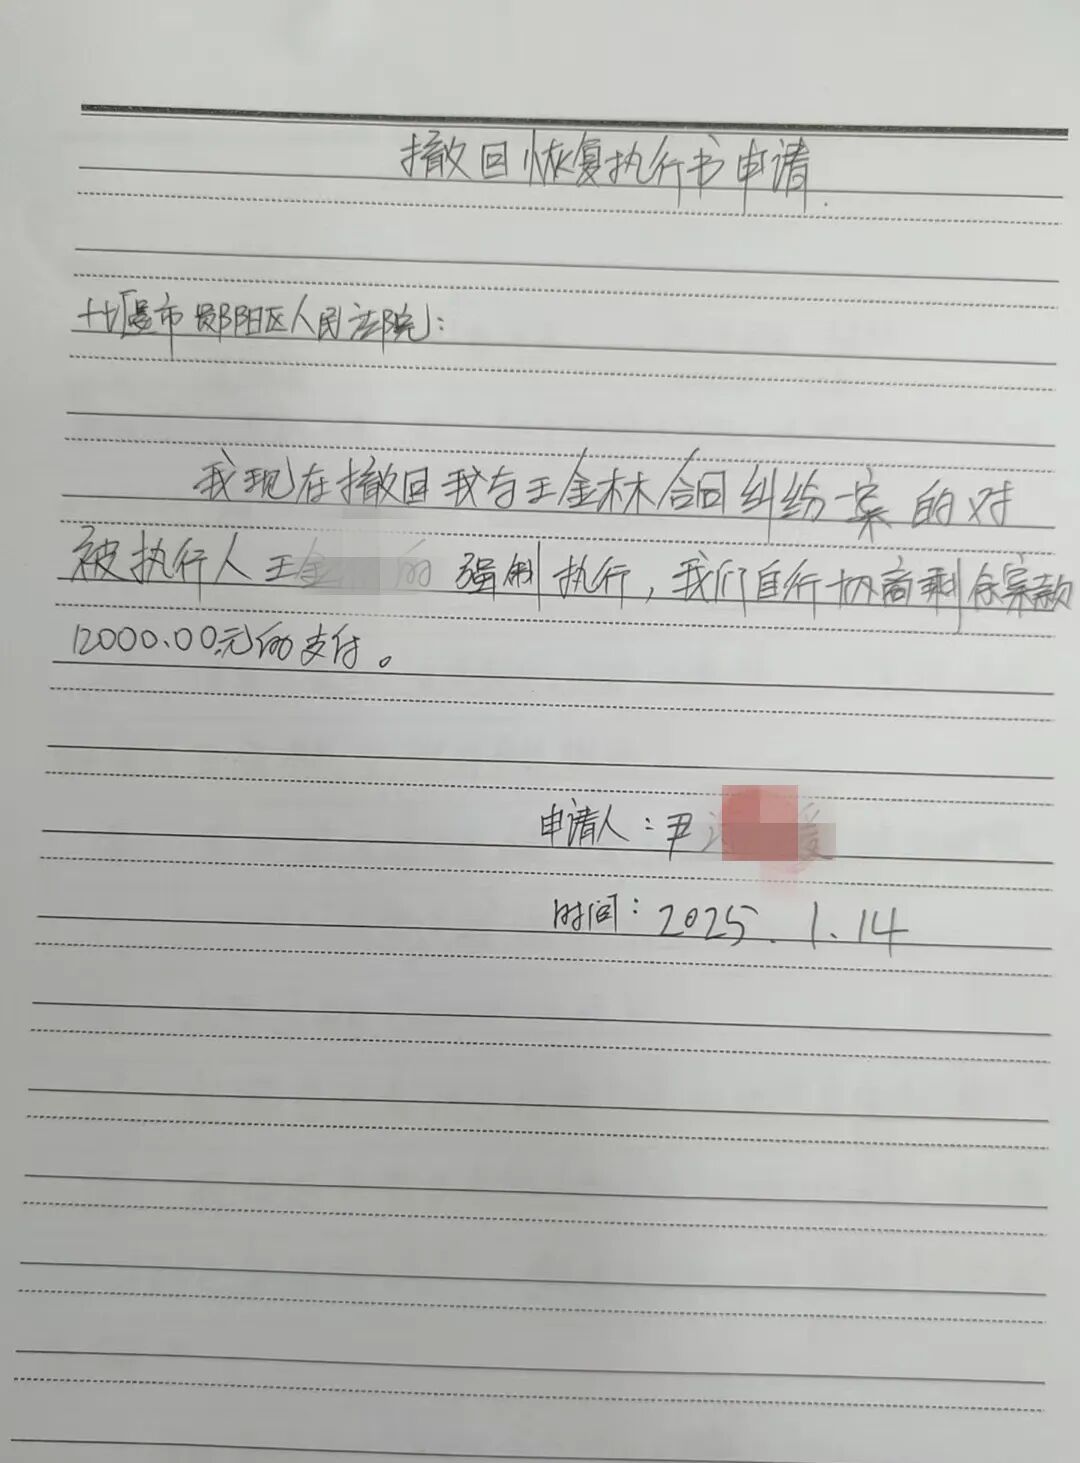 撤回恢复执行书申请
十堰市郧阳区人民法院:
我现在撤回我与王金林合同纠纷一案的对
被执行人王 的强制执行,我们自行协商剩余案款
12000.00元的支付。
申请人:尹
时间:2025.1.14